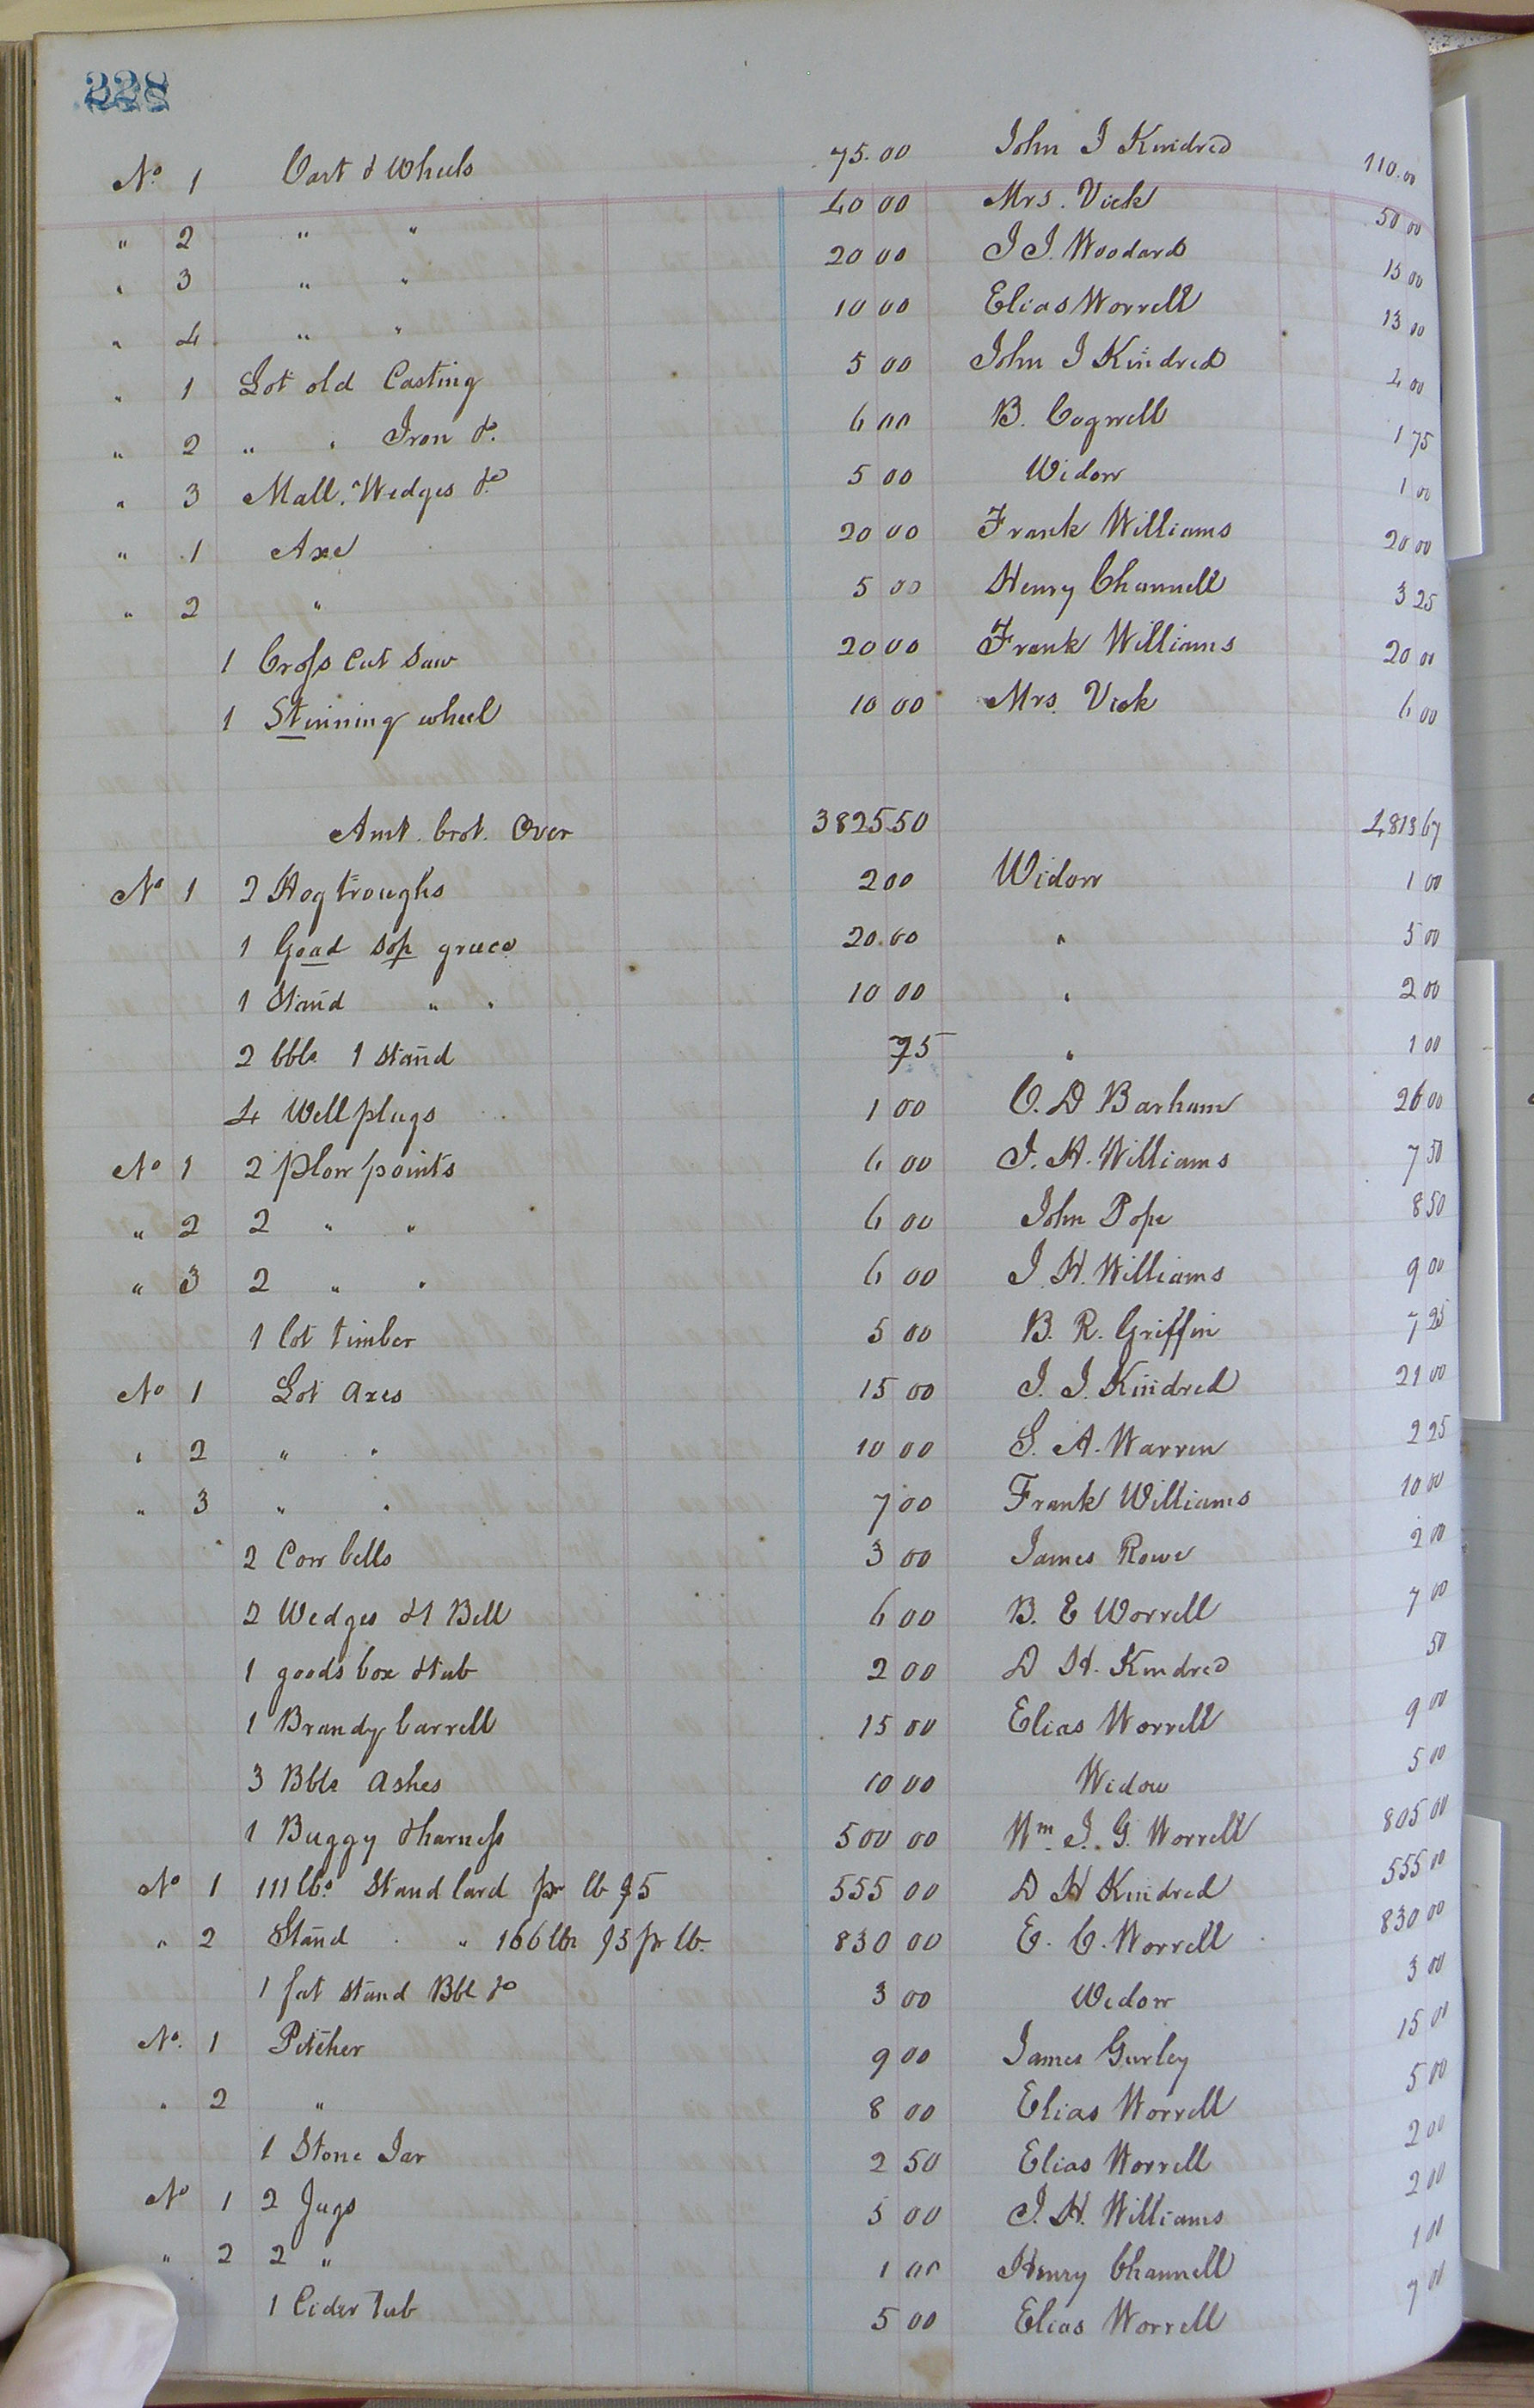 228
No. 1 Cart & Wheels 75.00 John J Kindred 110.00
" 2 " " 40 00 Mrs. Vick 50 00
" 3 " " 20 00 J J. Woodard 15 00
" 4 " " 10 00 Elias Worrell 13 00
" 1 Lot old Casting 5 00 John J Kindred 4 00
" 2 " " Iron &. 6 00 B. Cogwell 1 75
" 3 Mall, Wedges &c 5 00 Widow 1 00
" 1 Axe 20 00 Frank Williams 20 00
" 2 " 5 00 Henry Channell 3 25
1 Cross Cut Saw 20 00 Frank Williams 20 00
1 Stinning wheel 10 00 Mrs. Vick 6 00
Amt. brot. Over 3825.50 4,813 67
No 1 2 Hog troughs 2 00 Widow 1 00
1 Goad sop greece 20.00 " 5 00
1 Stand " " 10 00 " 2 00
2 bbls 1 stand 75 " 1 00
4 Well plugs 1 00 C. D Barham 26 00
No 1 2 plow points 6 00 J. H. Williams 7 50
" 2 2 " " 6 00 John Pope 8 50
" 3 2 " " 6 00 J. H. Williams 9 00
1 lot timber 5 00 B. R. Griffin 7 25
No 1 Lot axes 15 00 J. J. Kindred 21 00
" 2 " " 10 00 S. A. Warren 2 25
" 3 " " 7 00 Frank Williams 10 00
2 Cow bells 3 00 James Rowe 2 00
2 Wedges &1 Bell 6 00 B. E Worrell 7 00
1 goods box &tub 2 00 D H. Kindred 50
1 Brandy barrell 15 00 Elias Worrell 9 00
3 Bbls ashes 10 00 Widow 5 00
1 Buggy &harness 500 00 Wm. J. G. Worrell 805 00
No 1 111 lbs Stand lard pr lb $5 555 00 D H Kindred 555 00
" 2 Stand " " 166 lbs $5 pr lb. 830 00 E. C. Worrell 830 00
1 fat stand Bbl &c 3 00 Widow 3 00
No. 1 Pitcher 9 00 James Gurley 15 00
" 2 " 8 00 Elias Worrell 5 00
1 Stone Jar 2 50 Elias Worrell 2 00
No 1 2 Jugs 5 00 J. H. Williams 2 00
" 2 2 " 1 00 Henry Channell 1 00
1 Cider tub 5 00 Elias Worrell 7 00